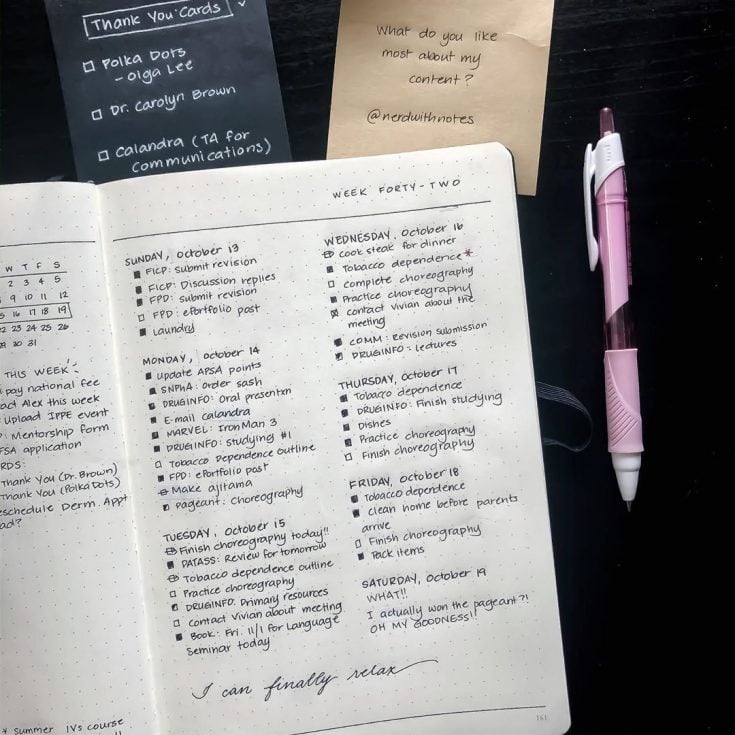 Thank You Cards
Polka Dots
- Olga Lee
Dr. Carolyn Brown
Calandra (TA for
Communications)
What do you like
most about my
content?
@nerdwithnotes
W T F S
2 3 4 5
9 10 11 12
16 17 18 19
22 23 24 25 26
29 30 31
THIS WEEK!
pay national fee
Alex this week
Upload IPPE event
Mentorship form
application
Thank You (Dr. Brown)
Thank You (Polka Dots)
Derm. Appt
* Summer IVs course
WEEK FORTY-TWO
SUNDAY, October 13
FICP: Submit revision
FICP: Discussion replies
FPD: Submit revision
FPD: ePortfolio past
Laundry
MONDAY, October 14
Update APSA points
SNPhA: Order sash
DRUGINFO: Oral presentxn
E-mail Calandra
MARVEL: Iron Man 3
DRUGINFO: Studying #1
Tobacco Dependence outline
FPD: ePortfolio past
Make ajitama
Pageant: Choreography
TUESDAY, October 15
Finish choreography today!!
DATASS: Review for tomorrow
Tobacco dependence outline
Practice choreography
DRUGINFO: Primary resources
Contact Vivian about meeting
Book: Fri. 11/1 for Language
Seminar today
WEDNESDAY, October 16
Cook steak for dinner
Tobacco dependence*
Complete choreography
Practice choreography
Contact Vivian about the
meeting
COMM: Revision submission
DRUGINFO: Lectures
THURSDAY, October 17
Tobacco dependence
DRUGINFO: Finish studying
Dishes
Practice choreography
Finish choreography
FRIDAY, October 18
Tobacco dependence
Clean home before parents
arrive
Finish choreography
Pack items
SATURDAY, October 19
WHAT!!
I actually won the pageant?!
OH MY GOODNESS!!
I can finally relax
161